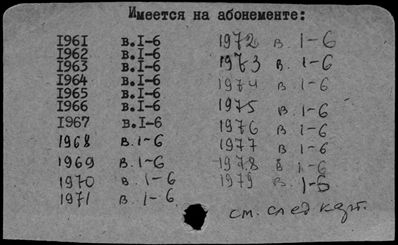 Имеется на абонементе:
1961 в.1-6
1962 в.1-6
1963 в.1-6
1964 в.1-6
1965 в.1-6
1966 в.1-6
1967 в.1-6
1968 в.1-6
1969 в.1-6
1970 в. 1-6
1971 в. 1-6
1972 в. 1-6
1973 в. 1-6
1974 в. 1-6
1975 в. 1-6
1976 в. 1-6
1977 в. 1-6
1978 в 1-6
1979 в. 1-6
см. след карт.